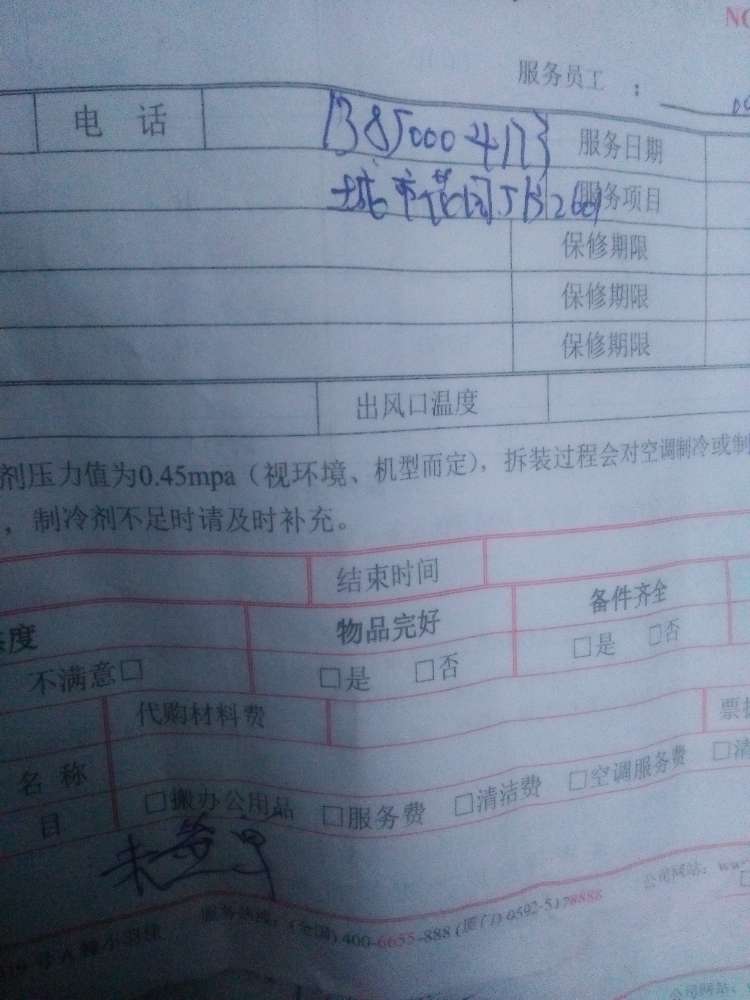 NO
服务员工：
电 话 13850004173 服务日期
城市花园 服务项目
保修期限
保修期限
保修期限
出风口温度
剂压力值为0.45mpa（视环境、机型而定），拆装过程会对空调制冷或制
，制冷剂不足时请及时补充。
结束时间
态度 物品完好 备件齐全
不满意□ □是 □否 □是 □否
代购材料费 票据
名 称
目 □搬办公用品 □服务费 □清洁费 □空调服务费 □清
服务热线：(全国) 400-6655-888 (厦门) 0592-5178888 公司网站：www
公司网站：